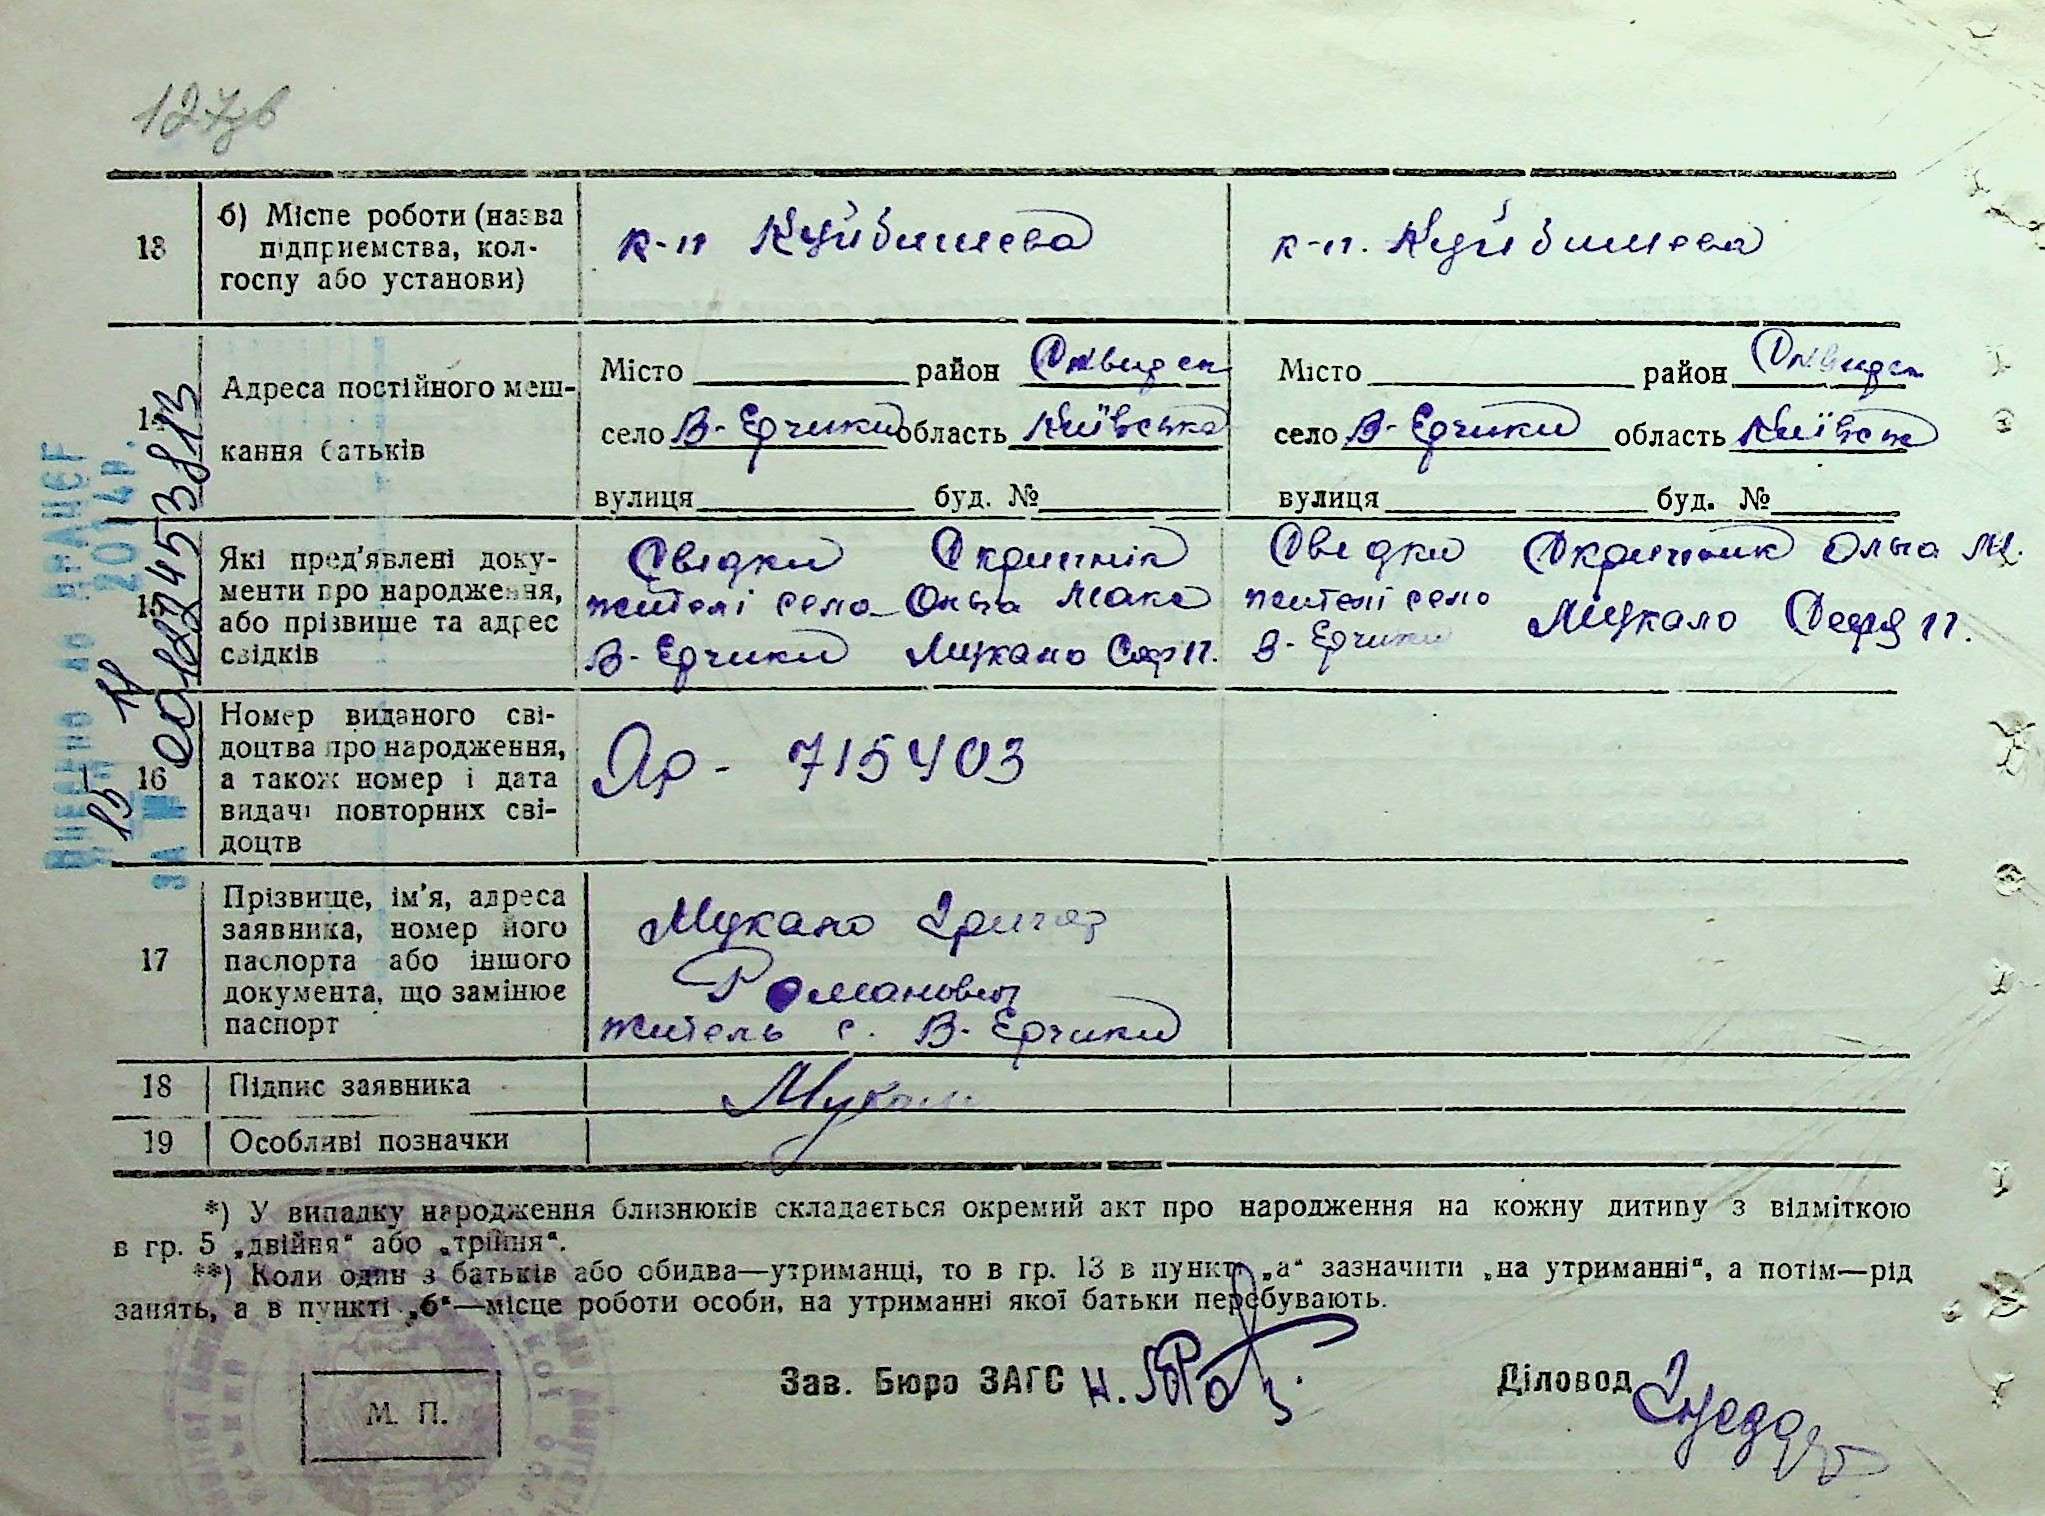 127зв
13
б) Місце роботи (назва
підприємства, кол-
госпу або установи)
к-п Куйбишева
к-п. Куйбишева
14
Адреса постійного меш-
кання батьків
Місто район Сквирск
село В-Ерчики область Київська
вулиця буд. №
Місто район Сквирск
село В-Ерчики область Київськ
вулиця буд. №
15
Які пред'явлені доку-
менти про народження,
або прізвище та адрес
свідків
Свідки Скрипнік
жителі села Ольга Макс
В-Ерчики Мукало Соф П.
Свідки Скрипник Ольга М.
жителі села Мукало Софя П.
В-Ерчики
16
Номер виданого сві-
доцтва про народження,
а також номер і дата
видачі повторних сві-
доцтв
Яр - 715403
17
Прізвище, ім'я, адреса
заявника, номер його
паспорта або іншого
документа, що замінює
паспорт
Мукало Григор
Романович
житель с. В-Ерчики
18
Підпис заявника
Мукало
19
Особливі позначки
*) У випадку народження близнюків складається окремий акт про народження на кожну дитину з відміткою
в гр. 5 „двійня“ або „трійня“.
**) Коли один з батьків або обидва—утриманці, то в гр. 13 в пункті „а“ зазначити „на утриманні“, а потім—рід
занять, а в пункті „б“—місце роботи особи, на утриманні якої батьки перебувають.
Зав. Бюро ЗАГС
Діловод
М. П.
Внесено до ДРАЦСГ
15 11 2014р.
за №